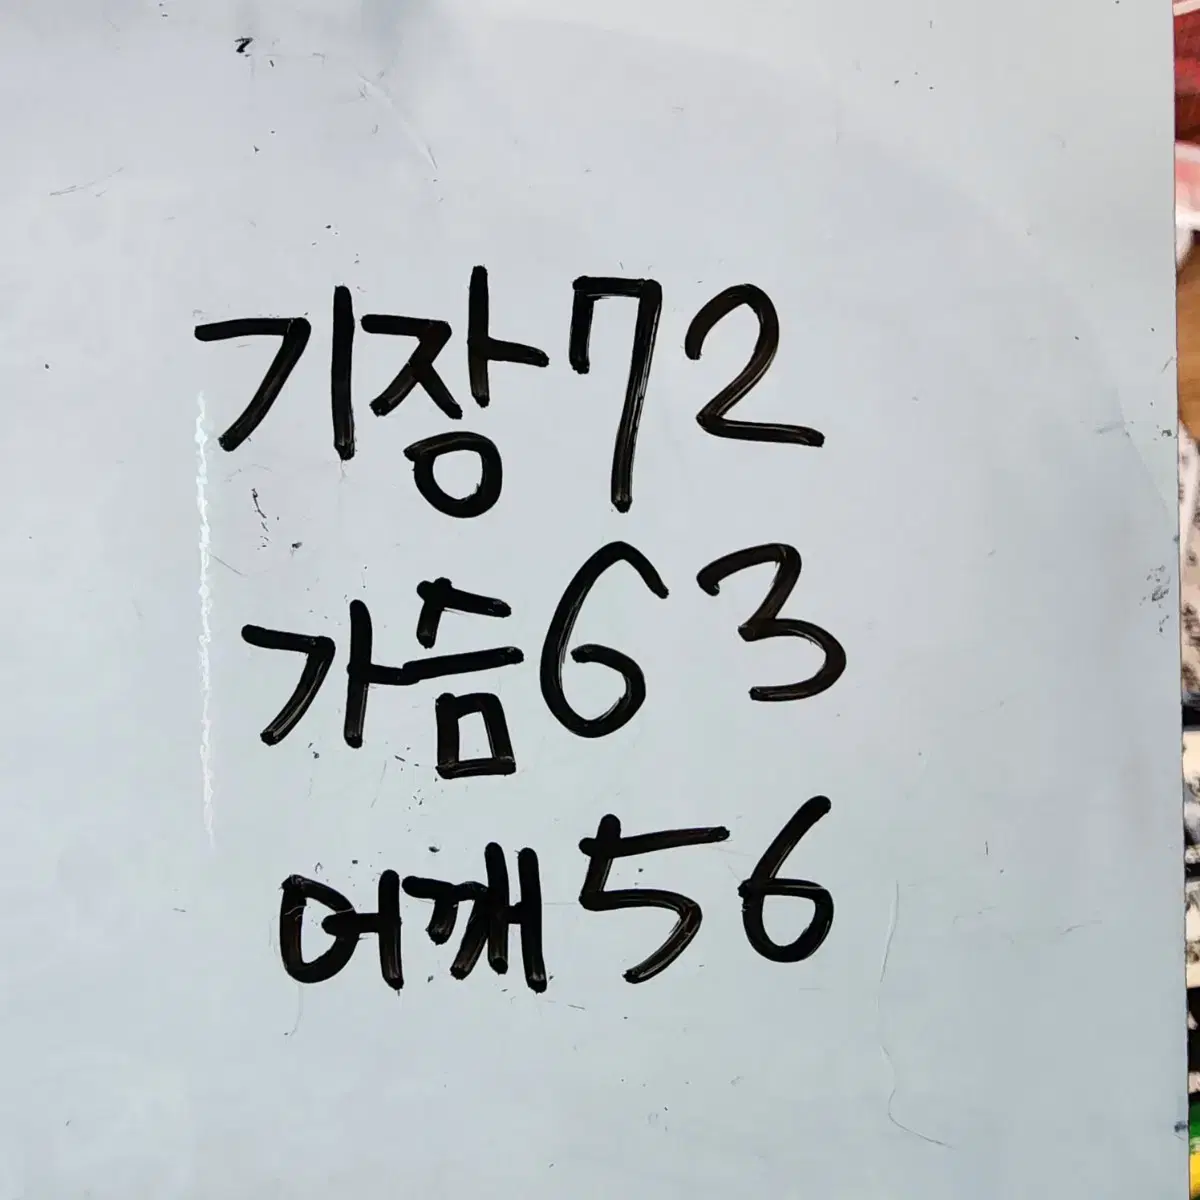 기장 72
가슴 63
어깨 56